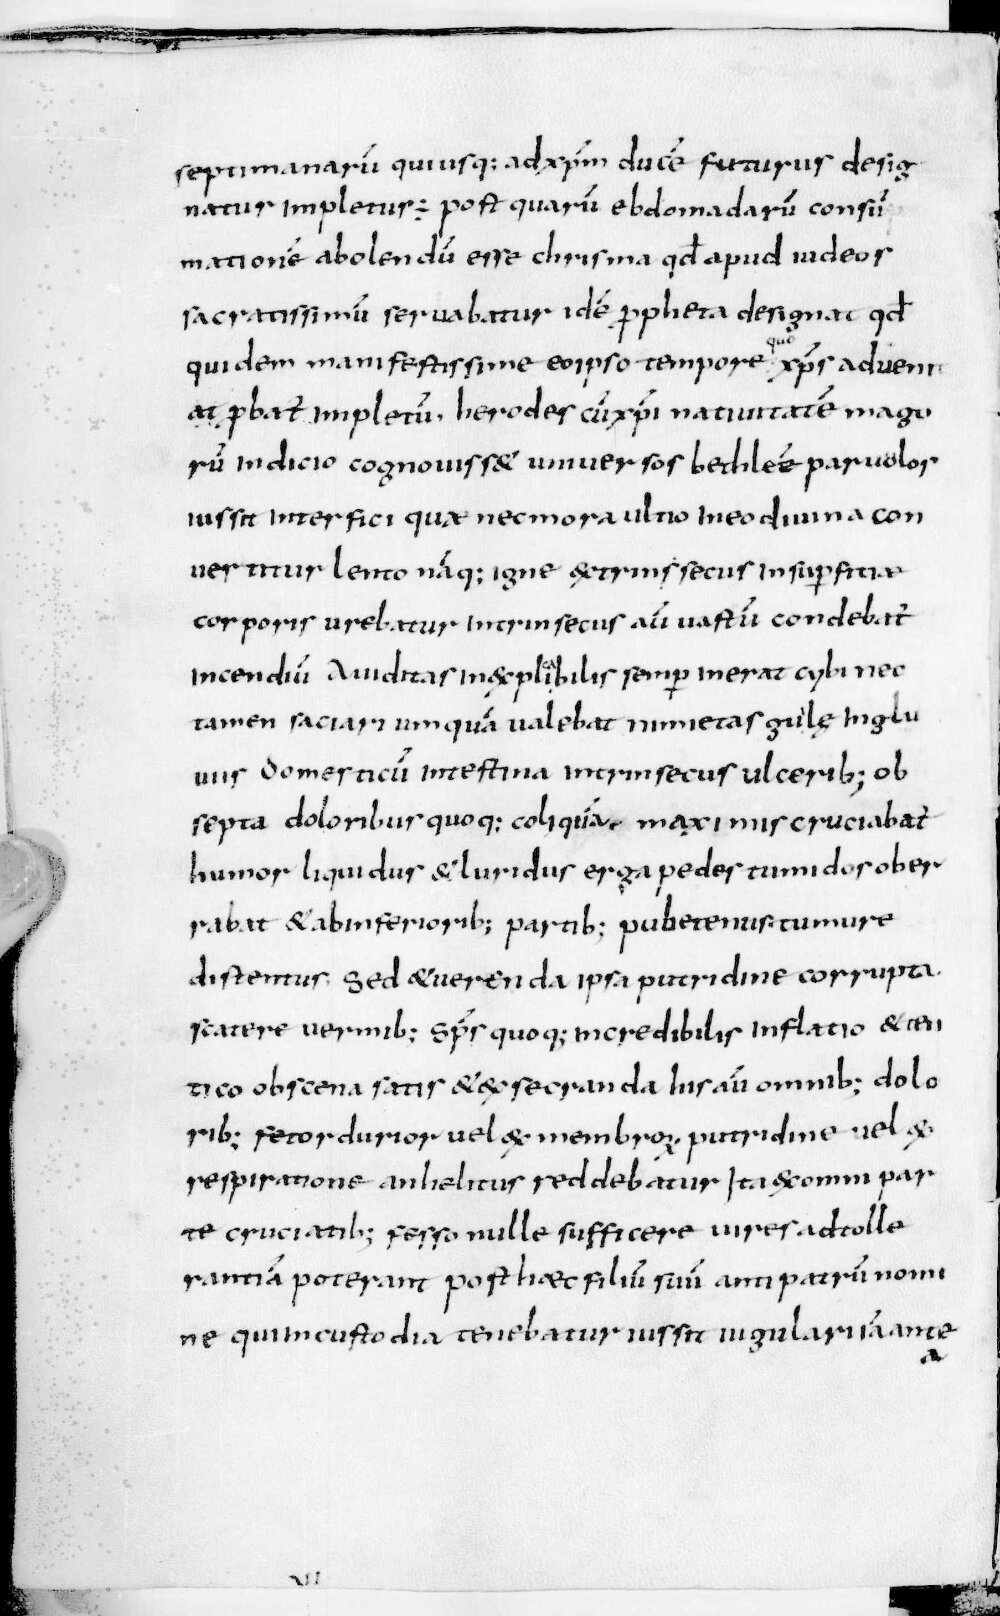 septimanarū quiusq; adxp̄m ducē futurus desig
natur impletur; post quarū ebdomadarū consū
mationē abolendū esse chrisma qđ apud iudeos
sacratissimū servabatur idē ꝓpheta designat qđ
quidem manifestissime eoipso tempore quo xp̄s advenit
at ꝓbat̄ impletū. herodes cūxp̄i nativitatē mago
rū indicio cognoviss& universos bethleē parvolos
iussit interfici quæ necmora ultio ineo divina con
vertitur lento nāq; igne &xtrinssecus insuꝑfitiæ
corporis urebatur intrinsecus aū vastū condebat̄
incendiū Aviditas in&xplicabilis semꝑ inerat cybi nec
tamen saciari umquā valebat nimietas gulę inglu
viis domesticū intestina intrinsecus ulcerib; ob
septa doloribus quoq; coliquā. maximis cruciabat̄
humor liquidus & luridus erga pedes tumidos ober
rabat & abinferiorib; partib; pubetenus. tumure
distentus. Sed & verenda ipsa putridine corrupta.
scatere vermib; Sp̄s quoq; incredibilis inflatio & ten
tico obscena satis & &xsecranda lusaū omnib; dolo
rib; fetor durior vel &x membroꝝ putridine vel &x
respiratione anhelitus reddebatur Ita &xomni par
te cruciatib; fesso nulle sufficere vires adtolle
rantiā poterant post hæc filiū suū antipatrū nomi
ne quiincustodia tenebatur iussit iugulari iāante
a
VII